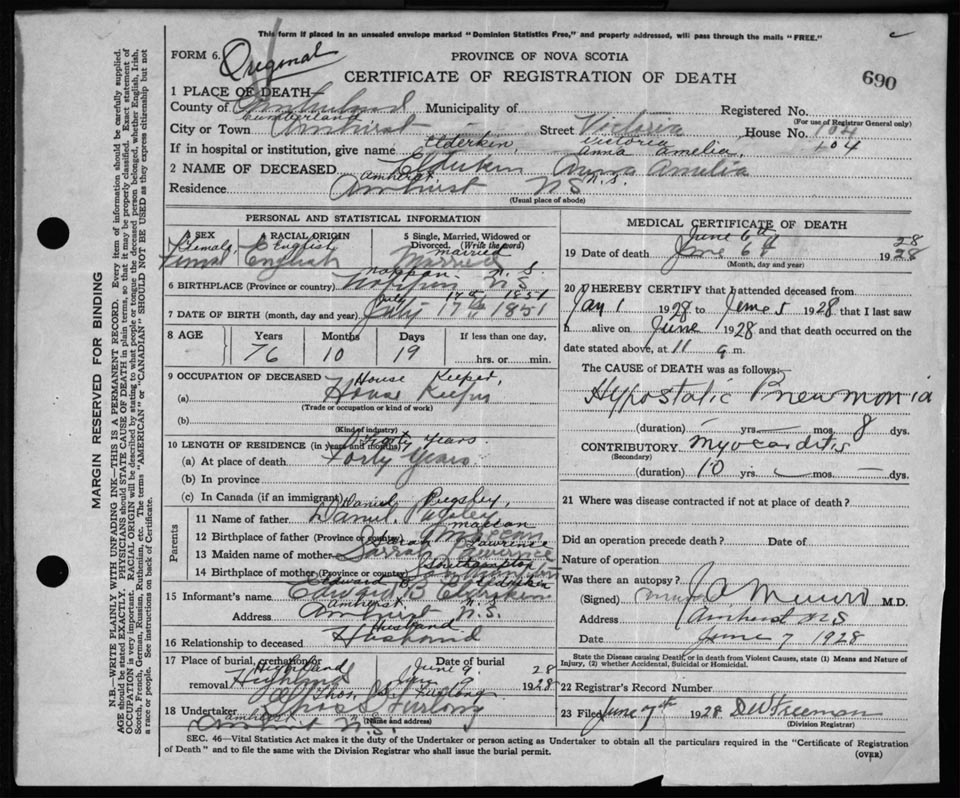 This form if placed in an unsealed envelope marked "Dominion Statistics Free," and properly addressed, will pass through the mails "FREE."
FORM 6. Original PROVINCE OF NOVA SCOTIA
CERTIFICATE OF REGISTRATION OF DEATH 690
1 PLACE OF DEATH—
County of Cumberland Municipality of Registered No.
Cumberland (For use of Registrar General only)
City or Town Amherst — Street Victoria House No. 104
Elderkin, Victoria 104
If in hospital or institution, give name Anna Amelia,
2 NAME OF DECEASED Elderkin Anna Amelia
Amherst N.S.
Residence Amherst NS
(Usual place of abode)
PERSONAL AND STATISTICAL INFORMATION
3 SEX 4 RACIAL ORIGIN 5 Single, Married, Widowed or Divorced. (Write the word)
Female English married
Female English Married
nappan. N. S.
6 BIRTHPLACE (Province or country) Nappan NS
July 17th 1851
7 DATE OF BIRTH (month, day and year) July 17th 1851
8 AGE Years Months Days If less than one day,
76 10 19 hrs. or min.
9 OCCUPATION OF DECEASED House Keeper,
(a) House Keeper
(Trade or occupation or kind of work)
(b)
(Kind of industry)
10 LENGTH OF RESIDENCE (in years and months) Forty Years.
(a) At place of death Forty Years
(b) In province
(c) In Canada (if an immigrant)
Daniel Pugsley,
Parents
11 Name of father Daniel Pugsley
maccan
12 Birthplace of father (Province or country)
Sarah Lawrence
13 Maiden name of mother
Southampton
14 Birthplace of mother (Province or country) Southampton
Edward B Elderkin
15 Informant's name Edward B Elderkin
Amherst,
Address Amherst N.S.
Husband
16 Relationship to deceased Husband
17 Place of burial, cremation or removal Date of burial
Highland June 9. 28
Highland June 9 1928
Thos. S. Furlong
18 Undertaker Thos S Furlong
Amherst N.S. (Name and address)
MEDICAL CERTIFICATE OF DEATH
June 6th 28
19 Date of death June 6th 1928
(Month, day and year)
20 I HEREBY CERTIFY that I attended deceased from
Jan 1 1928 to June 5 1928 that I last saw
h alive on June 1 1928 and that death occurred on the
date stated above, at 11 a m.
The CAUSE of DEATH was as follows:—
Hypostatic Pneumonia
(duration) — yrs. — mos. 8 dys.
CONTRIBUTORY Myocarditis
(Secondary)
(duration) 10 yrs. — mos. — dys.
21 Where was disease contracted if not at place of death?
Did an operation precede death? Date of
Nature of operation
Was there an autopsy?
(Signed) Munro M.D.
Address Amherst NS
Date June 7 1928
State the Disease causing Death, or in death from Violent Causes, state (1) Means and Nature of Injury, (2) whether Accidental, Suicidal or Homicidal.
22 Registrar's Record Number
23 Filed June 7th 1928 DW Freeman
(Division Registrar)
SEC. 46—Vital Statistics Act makes it the duty of the Undertaker or person acting as Undertaker to obtain all the particulars required in the "Certificate of Registration
of Death" and to file the same with the Division Registrar who shall issue the burial permit.
(OVER)
MARGIN RESERVED FOR BINDING
N.B.—WRITE PLAINLY WITH UNFADING INK—THIS IS A PERMANENT RECORD. Every item of information should be carefully supplied.
AGE should be stated EXACTLY. PHYSICIANS should STATE CAUSE OF DEATH in plain terms, so that it may be properly classified. Exact statement of
OCCUPATION is very important. RACIAL ORIGIN will be described by stating to what people or tongue the deceased person belonged, whether English, Irish,
Scotch, French, German, Russian, Ruthenian, etc. The terms "AMERICAN" or "CANADIAN" SHOULD NOT BE USED as they express citizenship but not
a race or people. See instructions on back of Certificate.